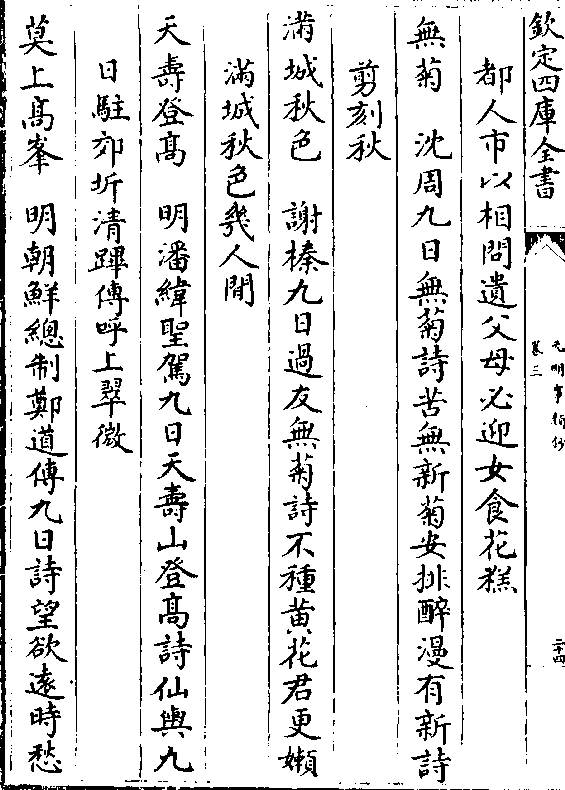 欽定四庫全書
元明事類鈔
卷三
二十四
都人市以相問遺父母必迎女食花糕
無菊　沈周九日無菊詩苦無新菊安排醉漫有新詩
剪刻秋
滿城秋色　謝榛九日過友無菊詩不種黄花君更嬾
滿城秋色幾人閒
天壽登高　明潘緯聖駕九日天壽山登高詩仙輿九
日駐郊圻清蹕傳呼上翠微
莫上高峯　明朝鮮總制鄭道傳九日詩望欲遠時愁